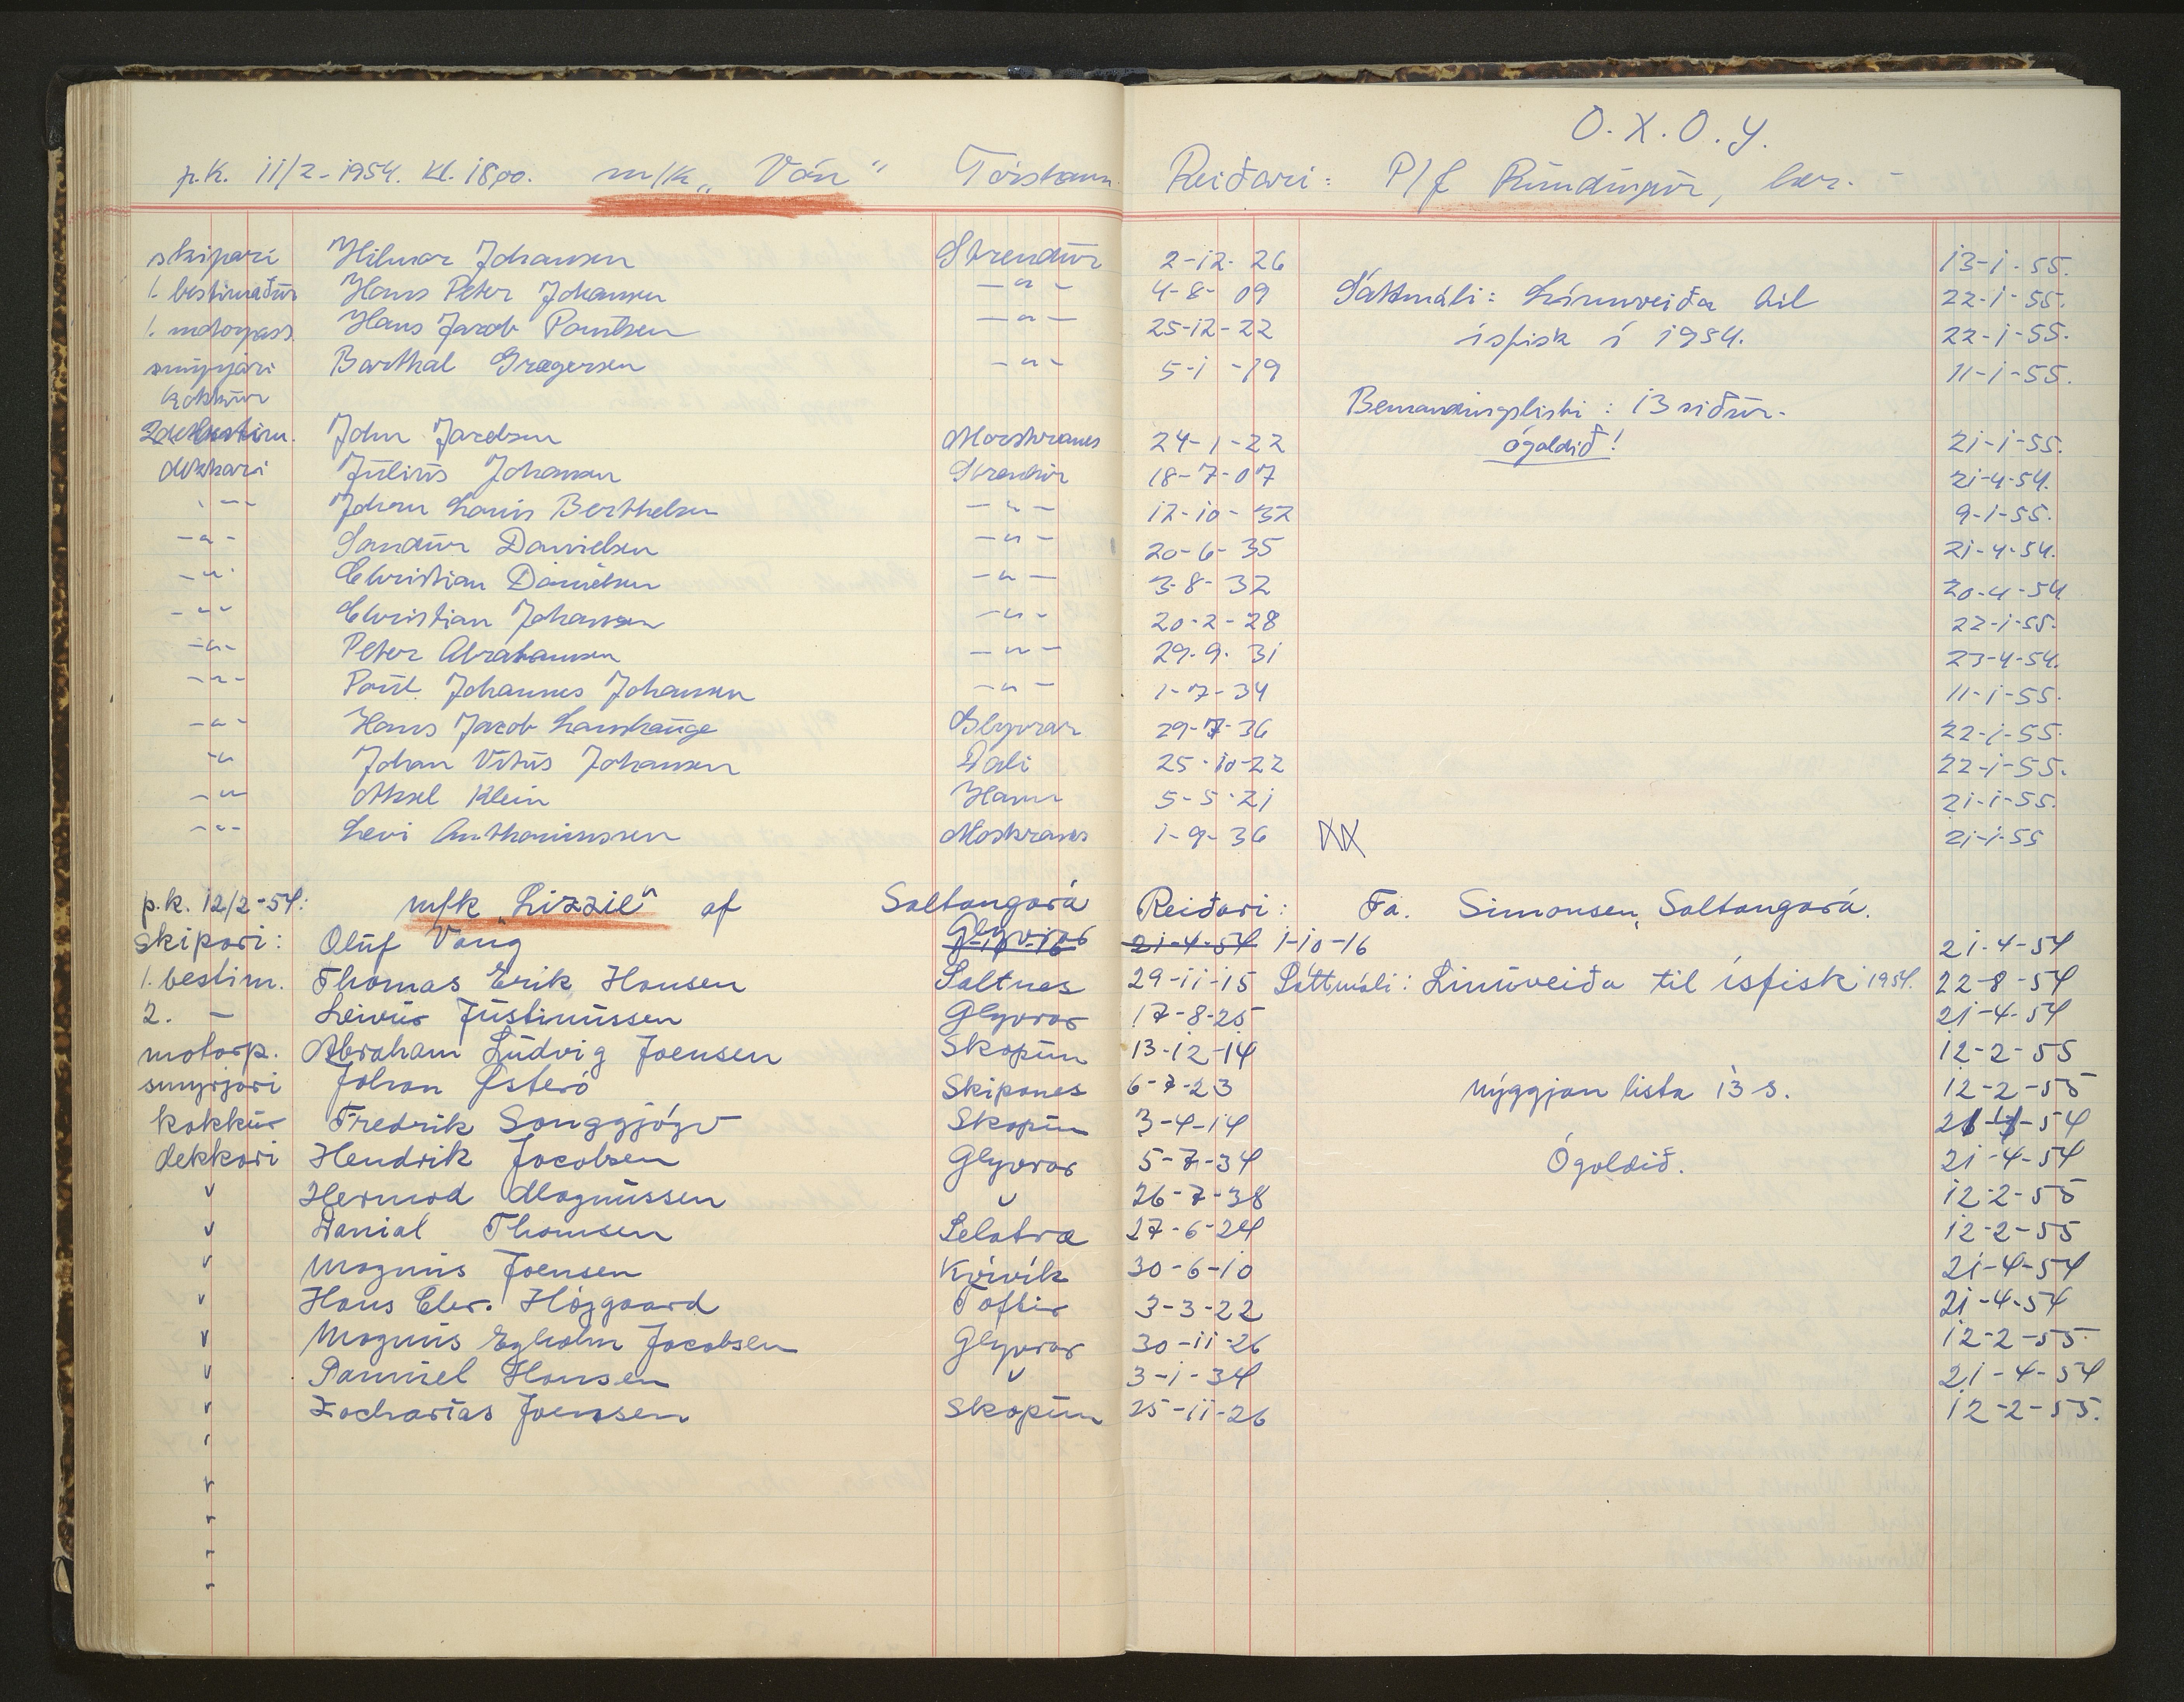 O.X.O.y.
p.k. 11/2-1954. Kl. 18oo. m/k „Ván" Tórshavn. Reiðari: P/f
skipari Hilmar Johansen Strendur 2-12-26 13-1-55.
1. bestimaður Hans Peter Johansen -"- 4-8-09 Sáttmáli: Línuveiða til 22-1-55.
1. motorpass. Hans Jacob Poulsen -"- 25-12-22 ísfisk í 1954. 22-1-55.
smyrjari Barthal Gregersen -"- 5-1-19 11-1-55.
kokkur Bemandingslisti: 13 siður.
2. bestim. John Jacobsen Morskranes 24-1-22 ógoldið! 21-1-55.
dekkari Júlíus Johansen Strendur 18-7-07 21-4-54.
-"- Johan Louis Berthelsen -"- 12-10-32 9-1-55.
-"- Sandur Danielsen -"- 20-6-35 21-4-54.
-"- Christian Danielsen -"- 3-8-32 20-4-54
-"- Christian Johansen -"- 20-2-28 22-1-55.
-"- Peter Abrahamsen -"- 29-9-31 23-4-54.
-"- Poul Johannes Johansen -"- 1-7-34 11-1-55.
-"- Hans Jacob Lamhauge Glyvrar 29-7-36 22-1-55.
-"- Johan Vitus Johansen Dali 25-10-22 22-1-55.
-"- Aksel Klein Havn 5-5-21 21-1-55.
-"- Levi Anthoniussen Moskranes 1-9-36 XX 21-1-55
p.k. 12/2-54: m/k „Lizzie" af Saltangará Reiðari: Fa. Simonsen, Saltangará.
skipari: Oluf Vang Glyvrar 21-4-54 1-10-16 21-4-54
1. bestim. Thomas Erik Hansen Saltnes 29-11-15 Sáttmáli: Linuveiða til ísfisk 1954. 22-8-54
2. - Leivur Justinussen Glyvrar 17-8-25 21-4-54
motorp. Abraham Ludvig Joensen Skopun 13-12-14 12-2-55
smyrjari Johan Østerø Skipanes 6-7-23 nýggjan lista 13 s. 12-2-55
kokkur Fredrik Songgjógv Skopun 3-4-14 21-4-54
dekkari Hendrik Jacobsen Glyvrar 5-7-34 Ógoldið. 21-4-54
v Hermod Magnussen v 26-7-38 12-2-55
v Danial Thomsen Selatræ 27-6-24 12-2-55
v Magnus Joensen Kvívík 30-6-10 21-4-54
v Hans Chr. Højgaard Toftir 3-3-22 21-4-54
v Magnus Egholm Jacobsen Glyvrar 30-11-26 12-2-55
v Samuel Hansen v 3-1-34 21-4-54
v Zacharias Joensen Skopun 25-11-26 12-2-55.